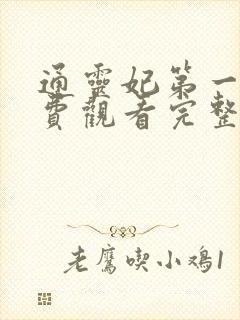 通靈妃第一
費觀看完整
老鷹喫小鸡1